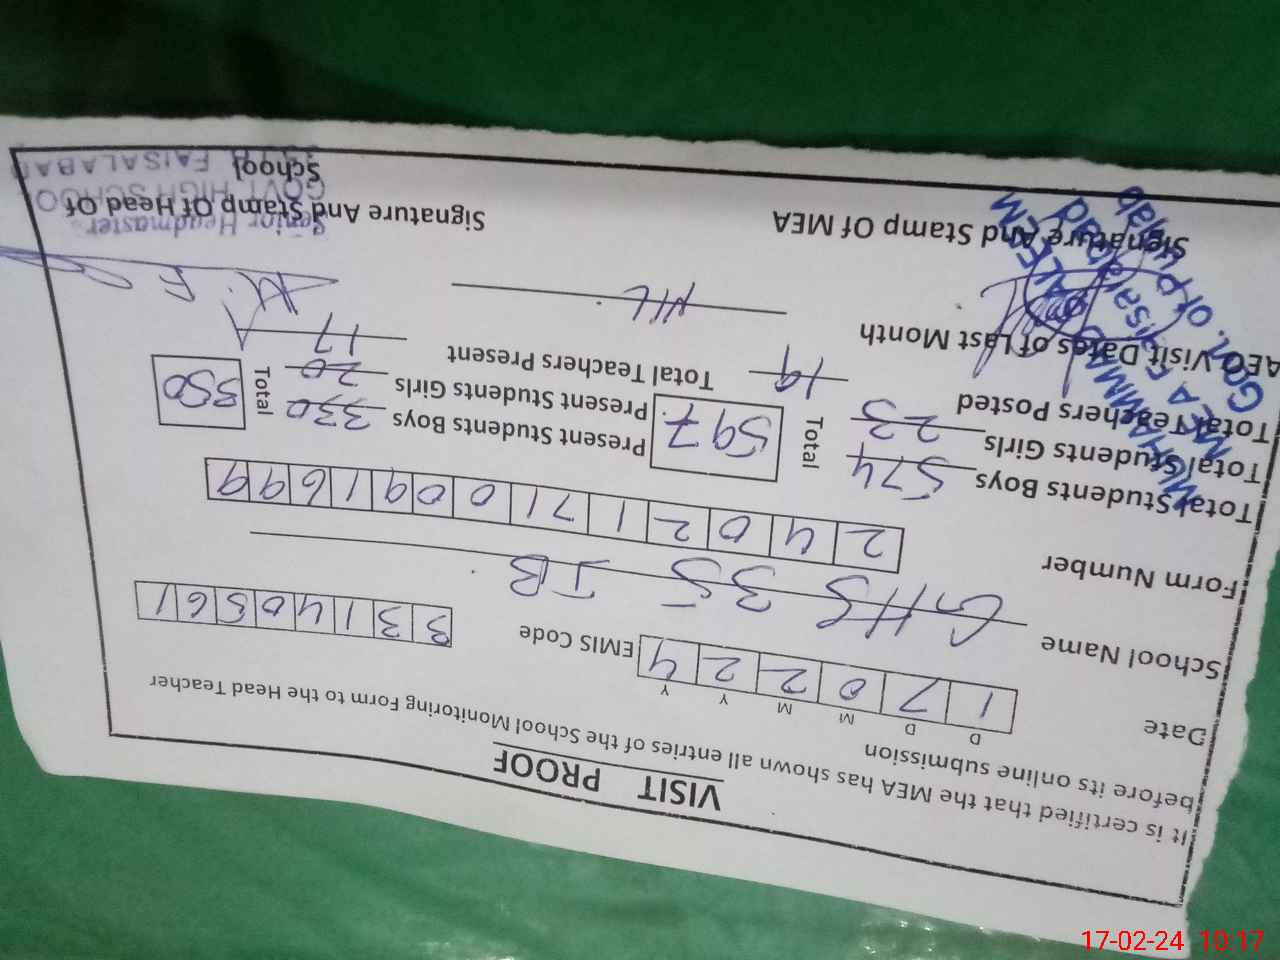 VISIT PROOF
It is certified that the MEA has shown all entries of the School Monitoring Form to the Head Teacher
before its online submission
D D M M Y Y
Date 1 7 0 2 2 4 EMIS Code 3 3 1 4 0 5 6 1
School Name GHS 35 JB
Form Number 2 4 0 2 1 7 1 0 0 9 1 6 9 9
Total Students Boys 574 Total 597 Present Students Boys 330 Total 350
Total Students Girls 23 Present Students Girls 20
Total Teachers Posted 19 Total Teachers Present 17
AEO Visit Dates of Last Month NIL
Signature And Stamp Of MEA Signature And Stamp Of Head Of
School
MUHAMMAD ALEEM
MEA Faisalabad
Govt. of Punjab
Senior Headmaster
GOVT HIGH SCHOOL
FAISALABAD
17-02-24 10:17